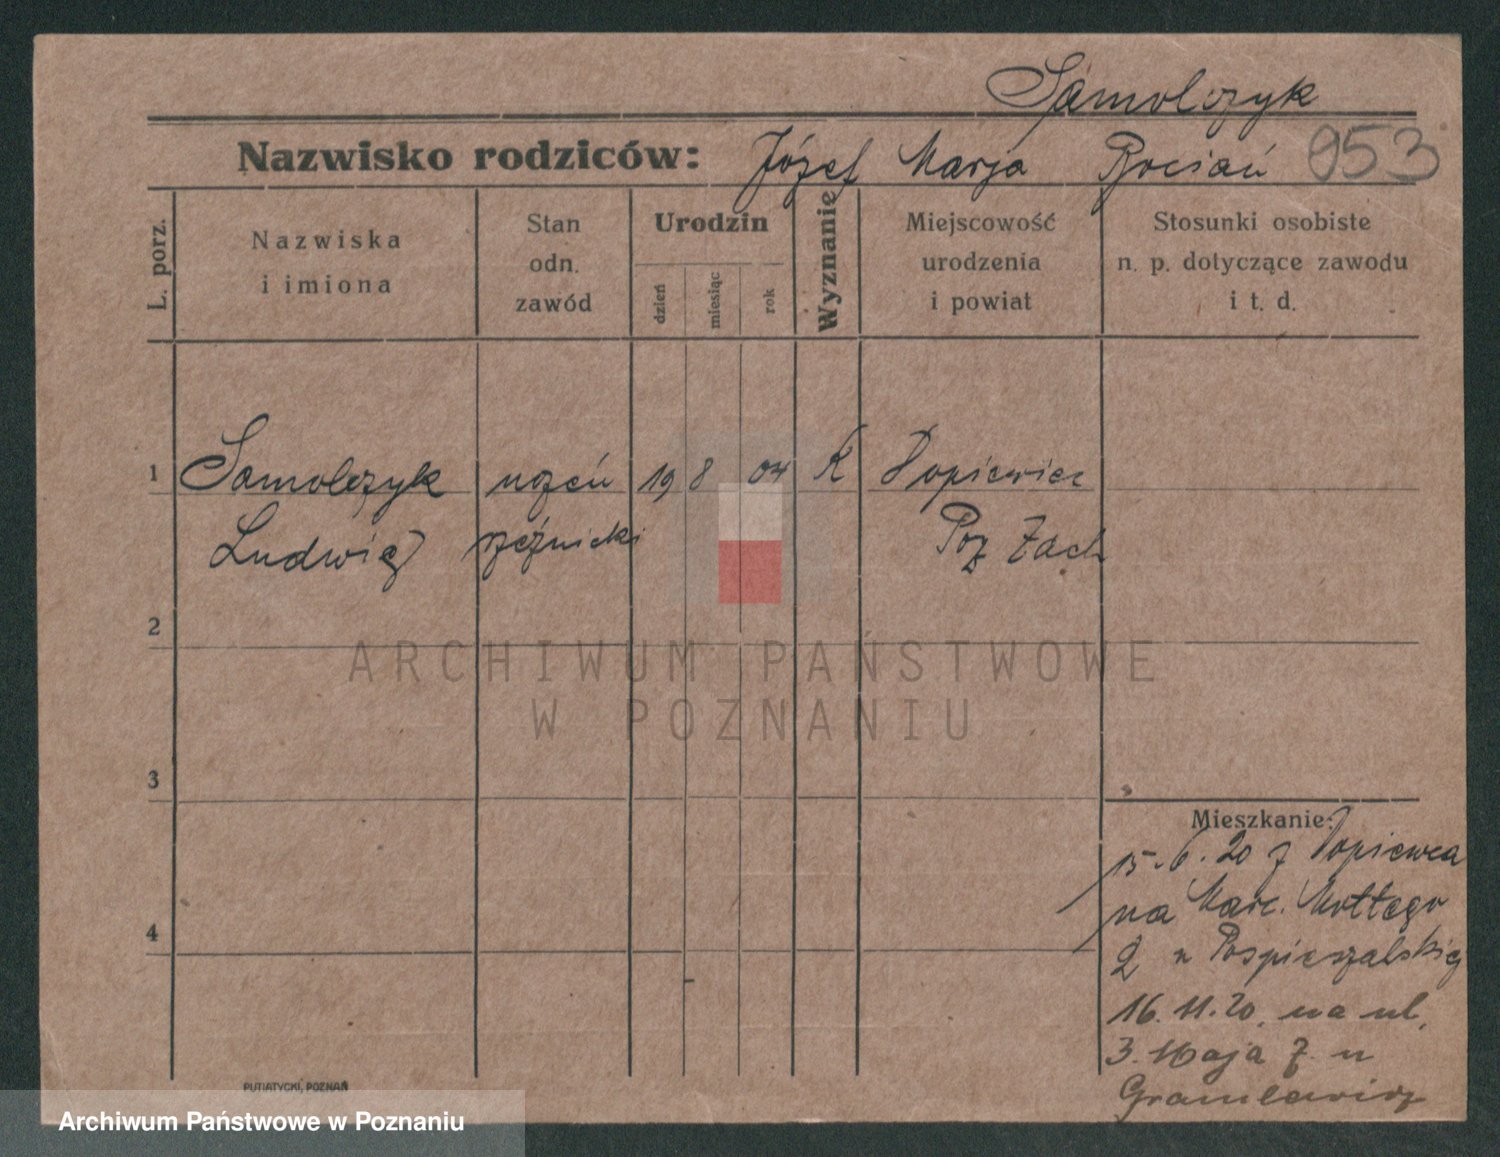 Samolczyk
Nazwisko rodziców: Józef Marja Bocian 953
L. porz.
Nazwiska
i imiona
Stan
odn.
zawód
Urodzin
dzień
miesiąc
rok
Wyznanie
Miejscowość
urodzenia
i powiat
Stosunki osobiste
n. p. dotyczące zawodu
i t. d.
1 Samolczyk uczeń 19 8 04 K Dopiewiec
Ludwig rzeźnicki Poz Zach
2
ARCHIWUM PAŃSTWOWE
W POZNANIU
3
Mieszkanie:
15.6.20 z Dopiewca
na Marc. Mottego
4
2 u Pospieszalskiej
16.11.20. na ul.
3. Maja 7. u
PUTIATYCKI, POZNAŃ
Archiwum Państwowe w Poznaniu